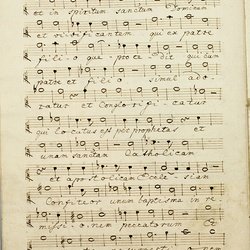 et in spiritum sanctum Dominum
et vivificantem qui ex patre
fili-o que proce-dit qui cum
patre et fili-o simul ado-
ratur et Conglorifi-catur
qui locutus est per prophetas et
unam sanctam Catholicam
et apostolicam Eccle-siam
Confiteor unum baptisma in re
missi-o-nem peccatorum